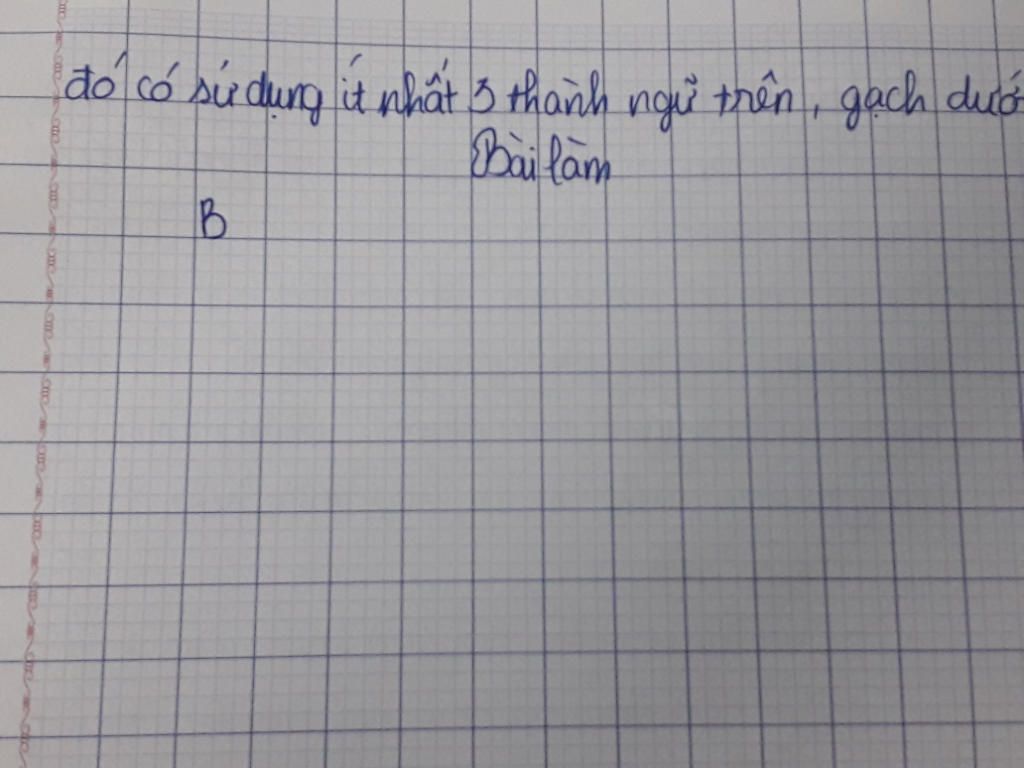 đó có sử dụng ít nhất 3 thành ngữ trên, gạch dướ
Bài làm
B